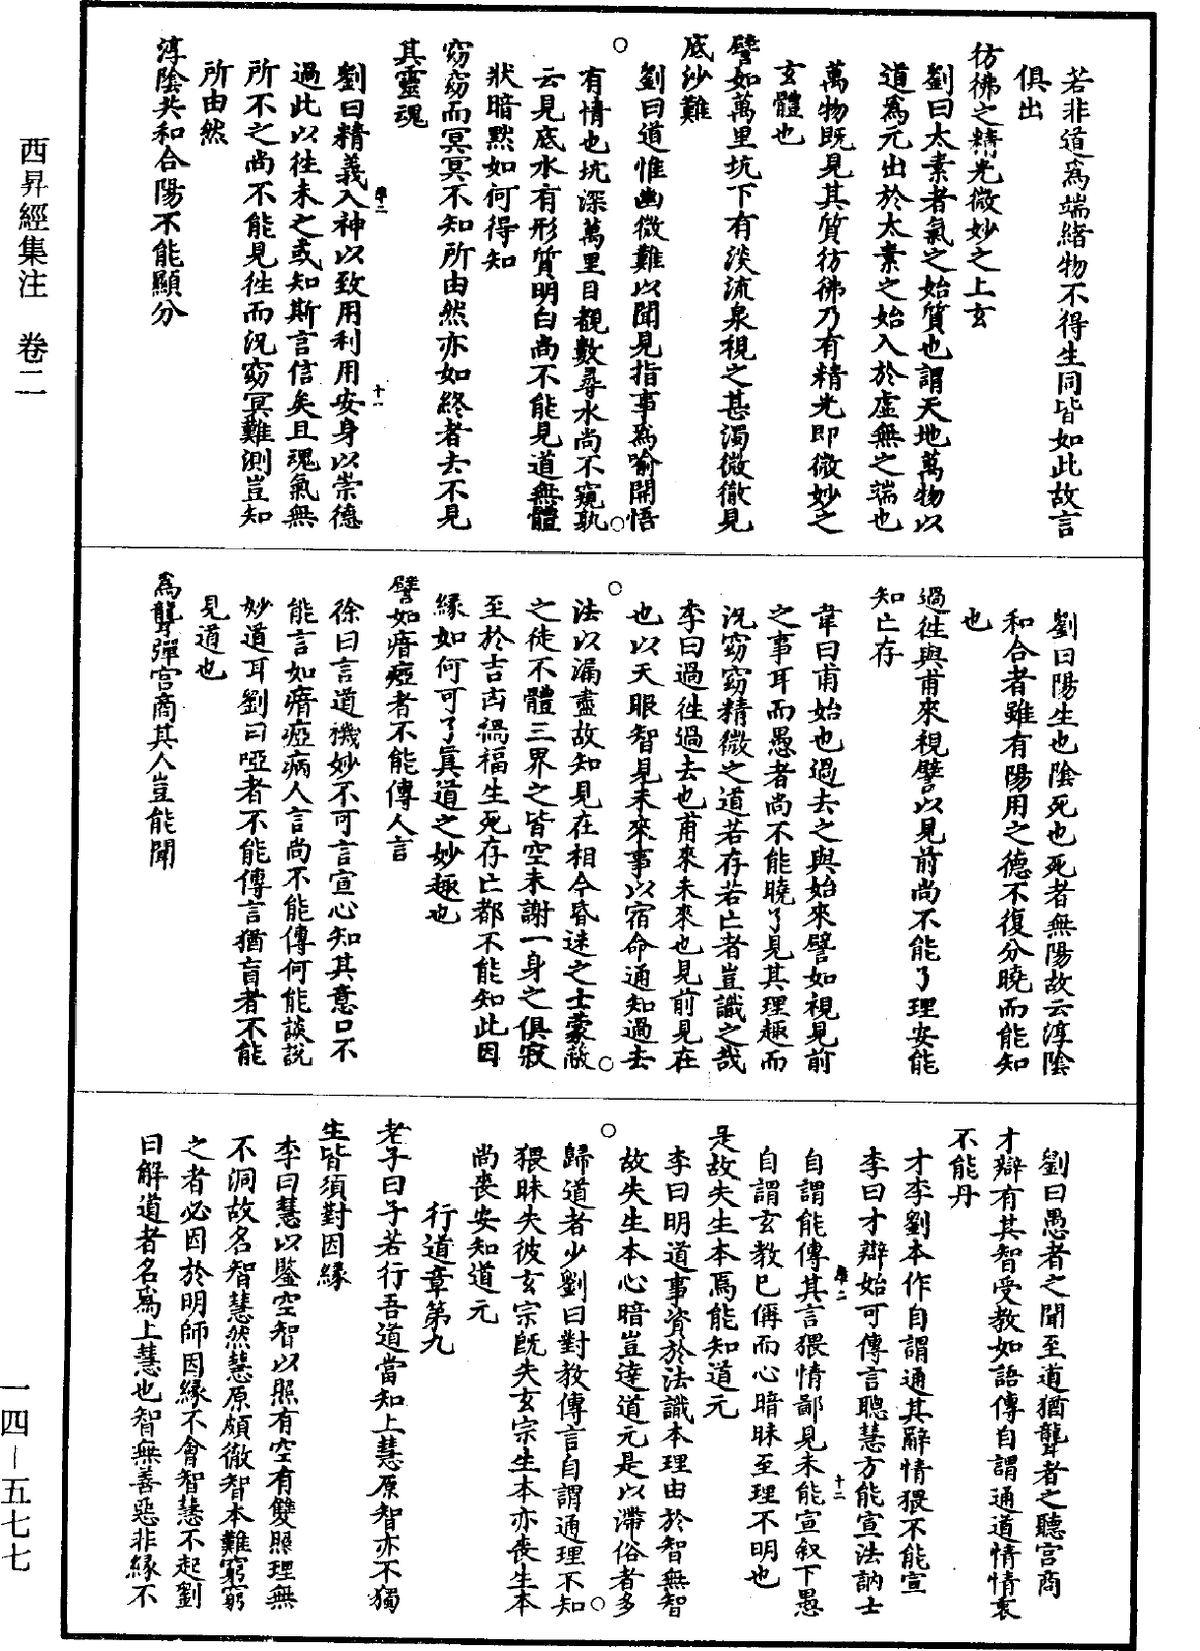 西昇經集注　卷二
一四－五七七
若非道爲端緒物不得生同皆如此故言
俱出
彷彿之精光微妙之上玄
劉曰太素者氣之始質也謂天地萬物以
道爲元出於太素之始入於虛無之端也
萬物既見其質彷彿乃有精光即微妙之
玄體也
譬如萬里坑下有淡流泉視之甚濁微徹見
底沙難
劉曰道惟幽微難以聞見指事爲喻開悟
有情也坑深萬里目觀數尋水尚不窺孰
云見底水有形質明白尚不能見道無體
狀暗默如何得知
窈窈而冥冥不知所由然亦如終者去不見
其靈魂
劉曰精義入神以致用利用安身以崇德
過此以往未之或知斯言信矣且魂氣無
所不之尚不能見往而況窈冥難測豈知
所由然
淳陰共和合陽不能顯分
劉曰陽生也陰死也死者無陽故云淳陰
和合者雖有陽用之德不復分曉而能知
也
過往與甫來視譬以見前尚不能了理安能
知亡存
韋曰甫始也過去之與始來譬如視見前
之事耳而愚者尚不能曉了見其理趣而
況窈窈精微之道若存若亡者豈識之哉
李曰過往過去也甫來未來也見前見在
也以天眼智見未來事以宿命通知過去
法以漏盡故知見在相今昏迷之士蒙蔽
之徒不體三界之皆空未謝一身之俱寂
至於吉凶禍福生死存亡都不能知此因
緣如何可了眞道之妙趣也
譬如瘖瘂者不能傳人言
徐曰言道微妙不可言宣心知其意口不
能言如瘖瘂病人言尚不能傳何能談說
妙道耳劉曰啞者不能傳言猶盲者不能
見道也
爲聾彈宮商其人豈能聞
劉曰愚者之聞至道猶聾者之聽宮商
才辯有其智受教如語傳自謂通道情情哀
不能丹
才李劉本作自謂通其辭情猥不能宣
李曰才辯始可傳言聰慧方能宣法訥士
自謂能傳其言猥情鄙見未能宣叙下愚
自謂玄教已偁而心暗昧至理不明也
是故失生本焉能知道元
李曰明道事資於法識本理由於智無智
故失生本心暗豈達道元是以滯俗者多
歸道者少劉曰對教傳言自謂通理不知
猥昧失彼玄宗旣失玄宗生本亦喪生本
尚喪安知道元
行道章第九
老子曰子若行吾道當知上慧原智亦不獨
生皆須對因緣
李曰慧以鑒空智以照有空有雙照理無
不洞故名智慧然慧原頗徹智本難窮窮
之者必因於明師因緣不會智慧不起劉
曰解道者名爲上慧也智無善惡非緣不